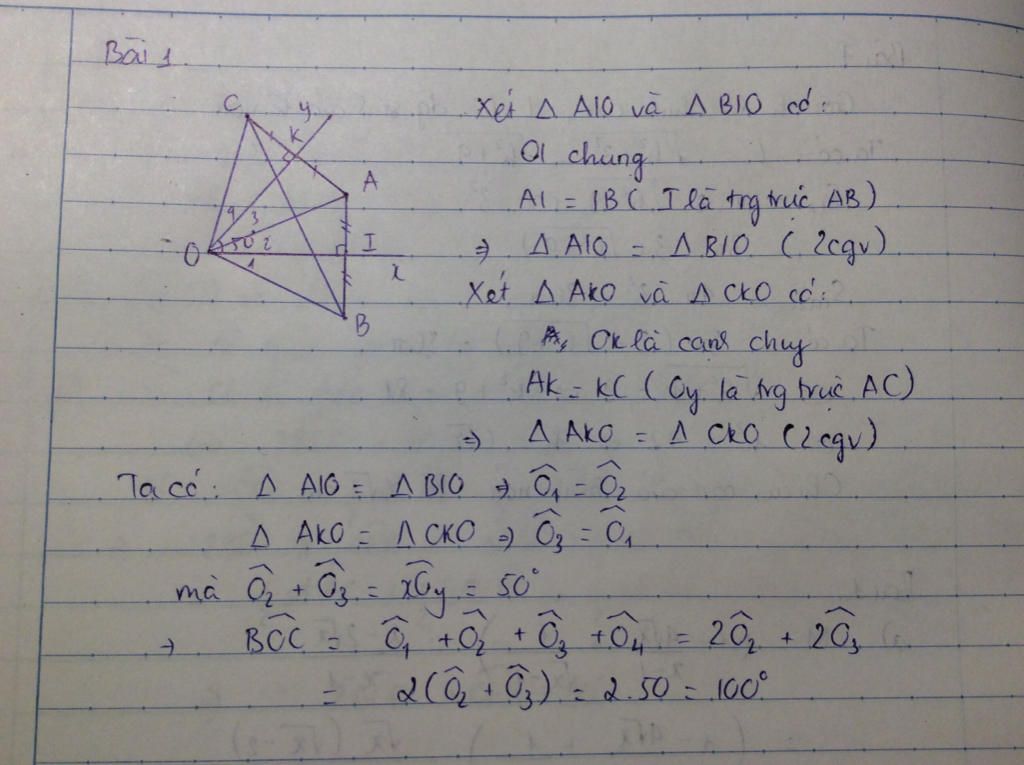 Bài 1.
C
y
K
A
4
3
50
2
O
1
I
x
B
Xét Δ AIO và Δ BIO có:
OI chung
AI = IB ( I là trg trực AB)
⇒ Δ AIO = Δ BIO ( 2cgv)
Xét Δ AKO và Δ CKO có:
OK là cạnh chug
AK = KC ( Oy là trg trực AC)
⇒ Δ AKO = Δ CKO (2cgv)
Ta có: Δ AIO = Δ BIO ⇒ Ô₁ = Ô₂
Δ AKO = Δ CKO ⇒ Ô₃ = Ô₁
mà Ô₂ + Ô₃ = xÔy = 50°
→ BÔC = Ô₁ + Ô₂ + Ô₃ + Ô₄ = 2Ô₂ + 2Ô₃
= 2(Ô₂ + Ô₃) = 2.50 = 100°